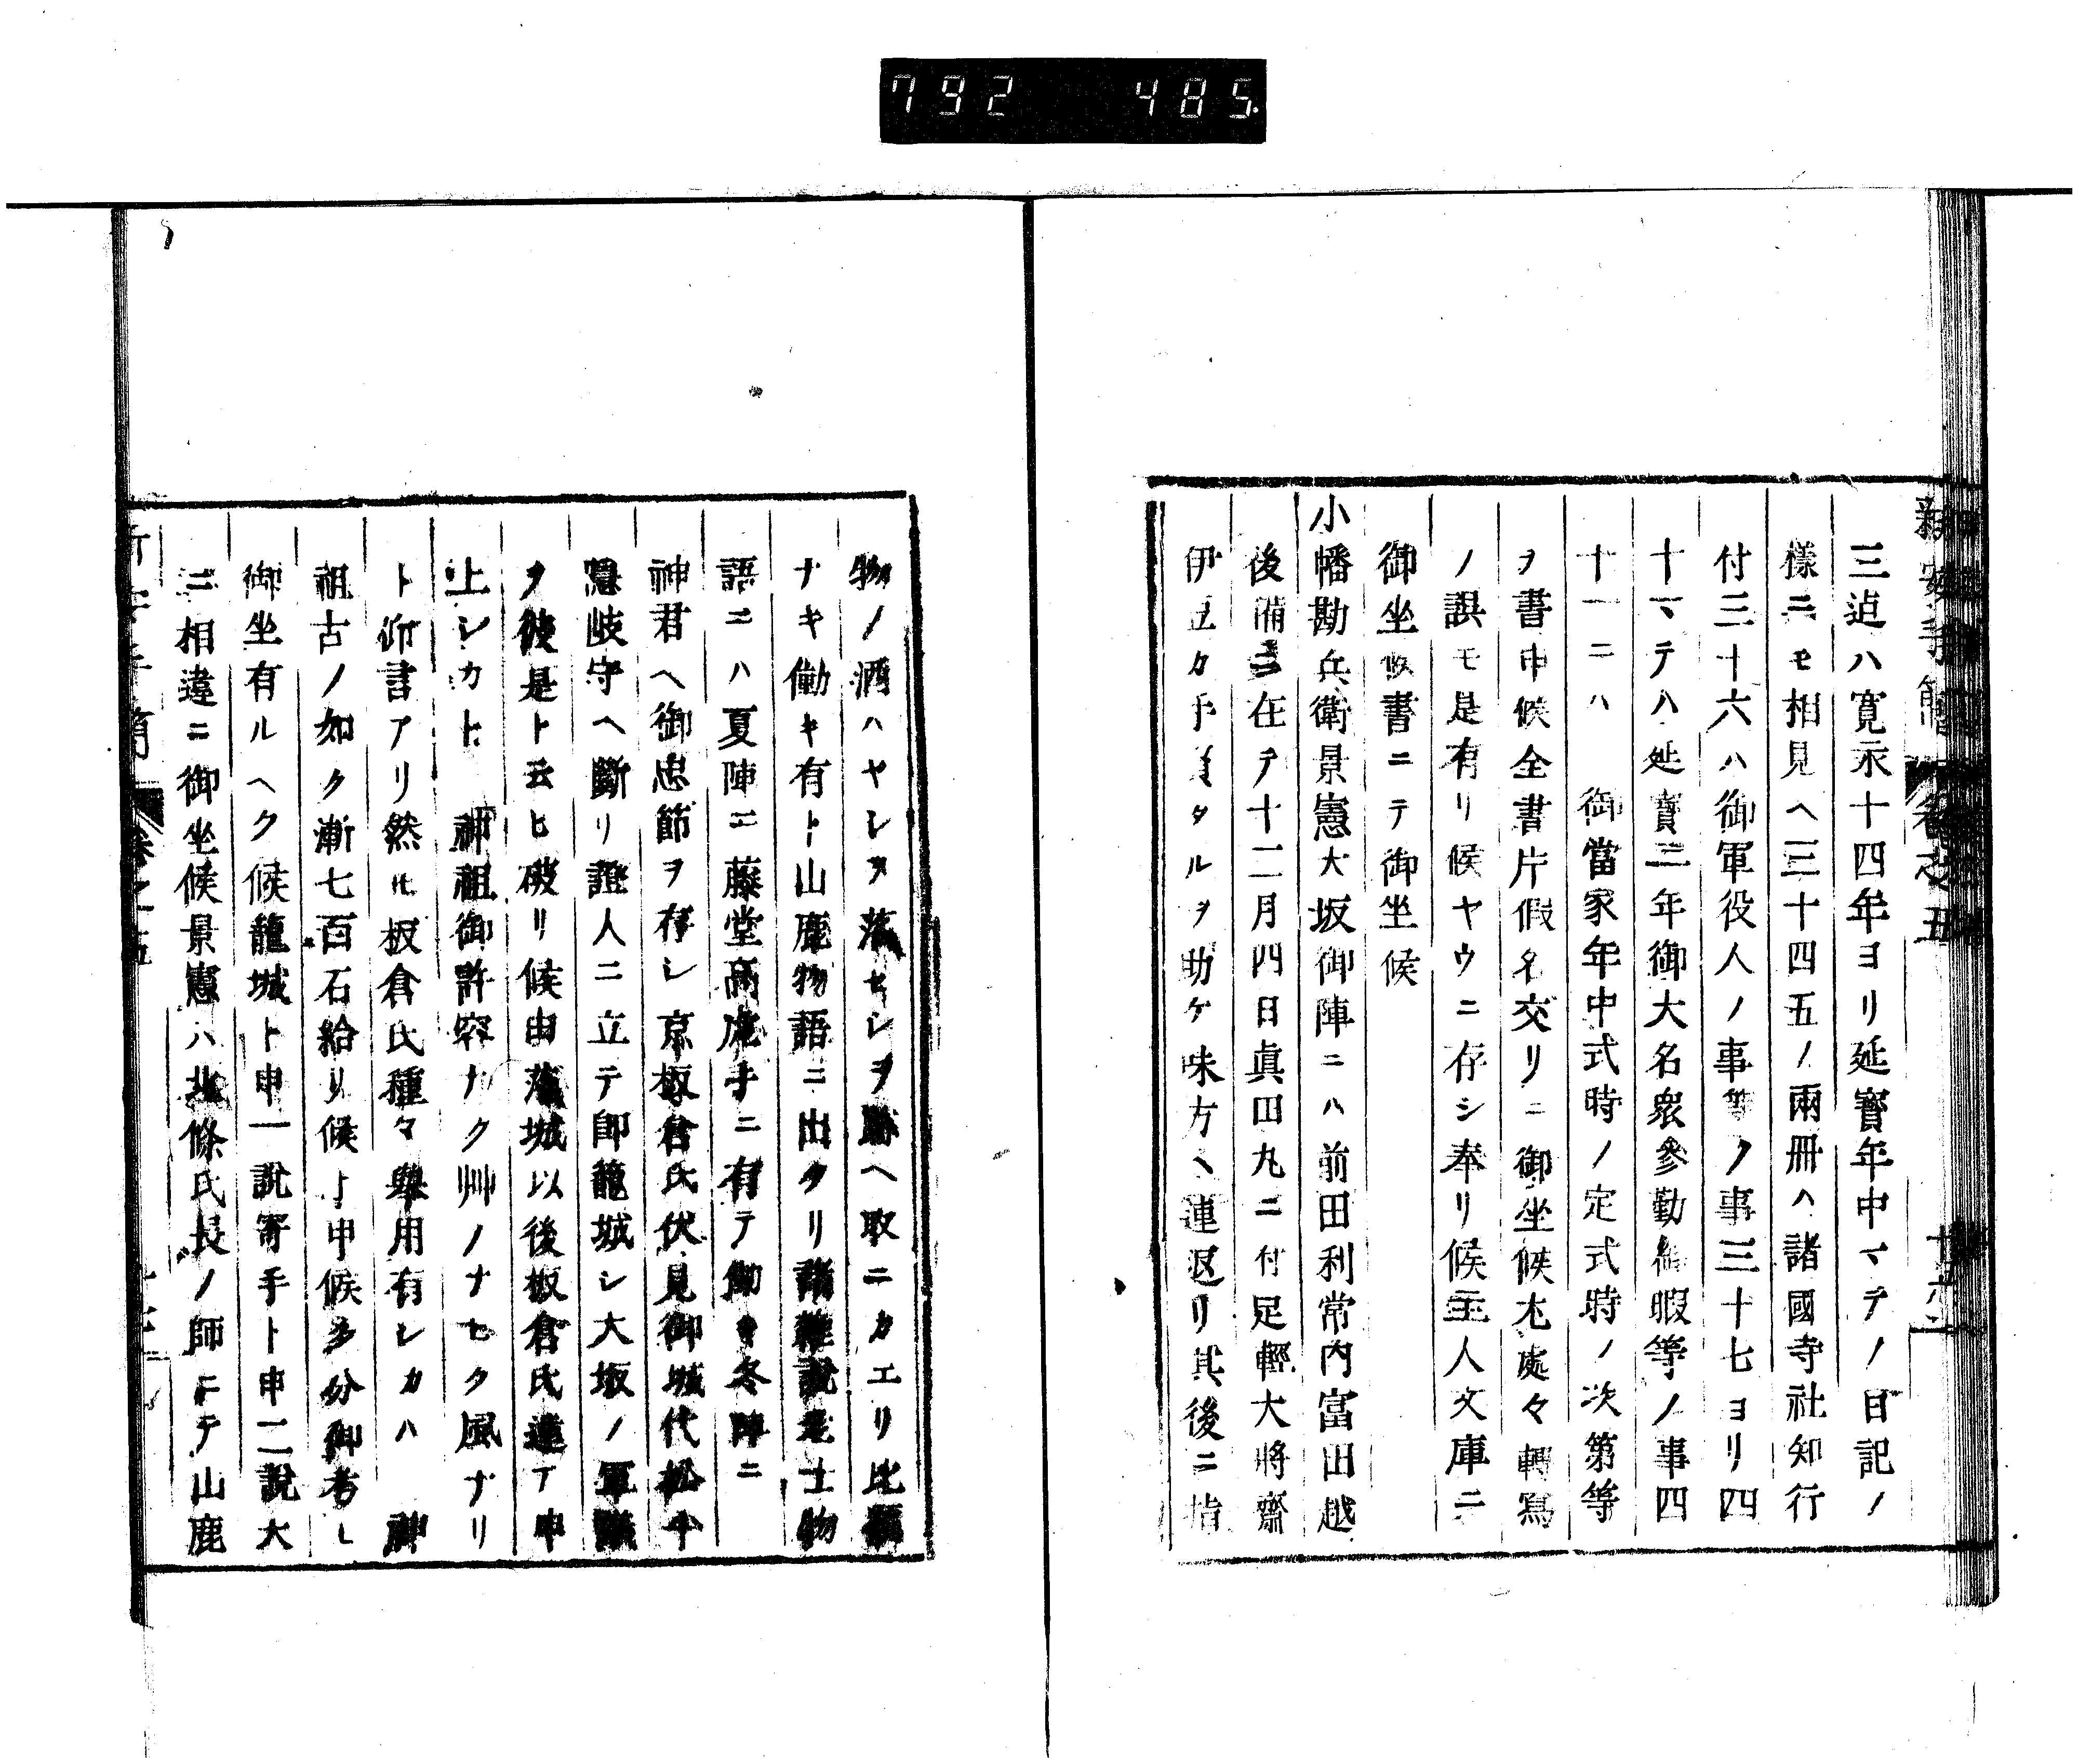 792 485
三迠ハ寛永十四年ヨリ延寶年中マテノ日記ノ
樣ニモ相見ヘ三十四五ノ兩冊ハ諸國寺社知行
付三十六ハ御軍役人ノ事等ノ事三十七ヨリ四
十マテハ延寶三年御大名衆參勤御暇等ノ事四
十一ニハ 御當家年中式時ノ定式時ノ次第等
ヲ書申候全書片假名交リニ御坐候尤處々轉寫
ノ誤モ是有リ候ヤウニ存シ奉リ候主人文庫ニ
御坐候書ニテ御坐候
小幡勘兵衛景憲大坂御陣ニハ前田利常内富田越
後備ニ在テ十二月四日眞田丸ニ付足輕大將齋
伊豆カ手負タルヲ助ケ味方ヘ連退リ其後ニ指
物ノ酒ハヤシヲ落セシヲ跡ヘ取ニカエリ比類
ナキ働キ有ト山鹿物語ニ出タリ諸雜說老士物
語ニハ夏陣ニ藤堂高虎手ニ有テ働キ冬陣ニ
神君ヘ御忠節ヲ存シ京板倉氏伏見御城代松平
隱岐守ヘ斷リ證人ニ立テ卽籠城シ大坂ノ軍議
ヲ彼是ト云ヒ破リ候由落城以後板倉氏達テ申
上シカト 神祖御許容ナク艸ノナセク風ナリ
ト命言アリ然ルニ板倉氏種々舉用有シカハ 神
祖古ノ如ク漸七百石給リ候ト申候多分御考シ
御坐有ルヘク候籠城ト申一說寄手ト申二說大
ニ相違ニ御坐候景憲ハ北條氏長ノ師ニテ山鹿